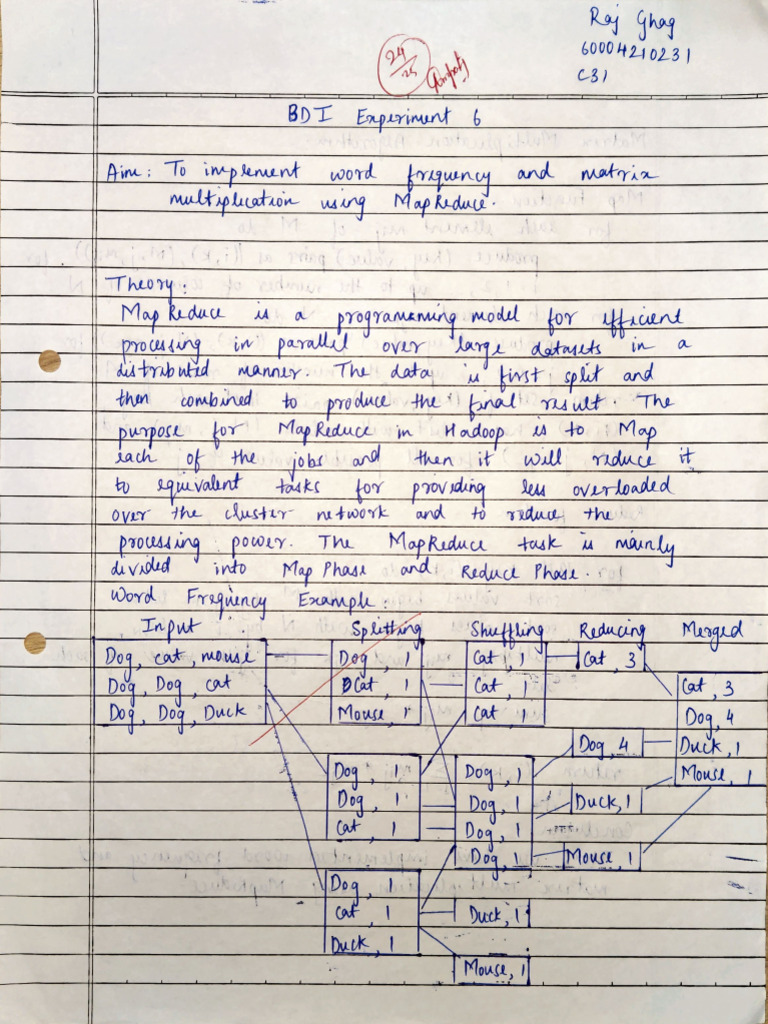 Raj Ghag
60004210231
C31
24/25
BDI Experiment 6
Aim: To implement word frequency and matrix
multiplication using MapReduce.
Theory:
MapReduce is a programming model for efficient
processing in parallel over large datasets in a
distributed manner. The data is first split and
then combined to produce the final result. The
purpose for MapReduce in Hadoop is to Map
each of the jobs and then it will reduce it
to equivalent tasks for providing less overloaded
over the cluster network and to reduce the
processing power. The MapReduce task is mainly
divided into Map Phase and Reduce Phase.
Word Frequency Example:
Input Splitting Shuffling Reducing Merged
Dog, cat, mouse Dog, 1 Cat, 1 Cat, 3
Dog, Dog, cat Cat, 1 Cat, 1 Cat, 3
Dog, Dog, Duck Mouse, 1 Cat, 1 Dog, 4
Dog, 4 Duck, 1
Dog, 1 Dog, 1 Mouse, 1
Dog, 1 Dog, 1 Duck, 1
Cat, 1 Dog, 1
Dog, 1 Mouse, 1
Dog, 1
Cat, 1 Duck, 1
Duck, 1
Mouse, 1